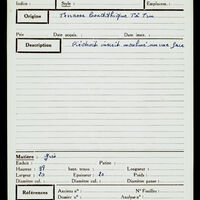 Indice : Style : Emplacem. :
Origine Terrasse Bouddhique Tà Tru
Prix Date acquis. : Date invent. :
Description Piédroit inscrit mouluré sur une face
Matière : grès
Enduit : Patine :
Hauteur : haut. tenon : Longueur :
Largeur : Epaisseur : Profond. :
Diamètre col. : Diamètre panse :
Références Anciens nos : Nos Fouilles :
Dossier : Analyse nos :